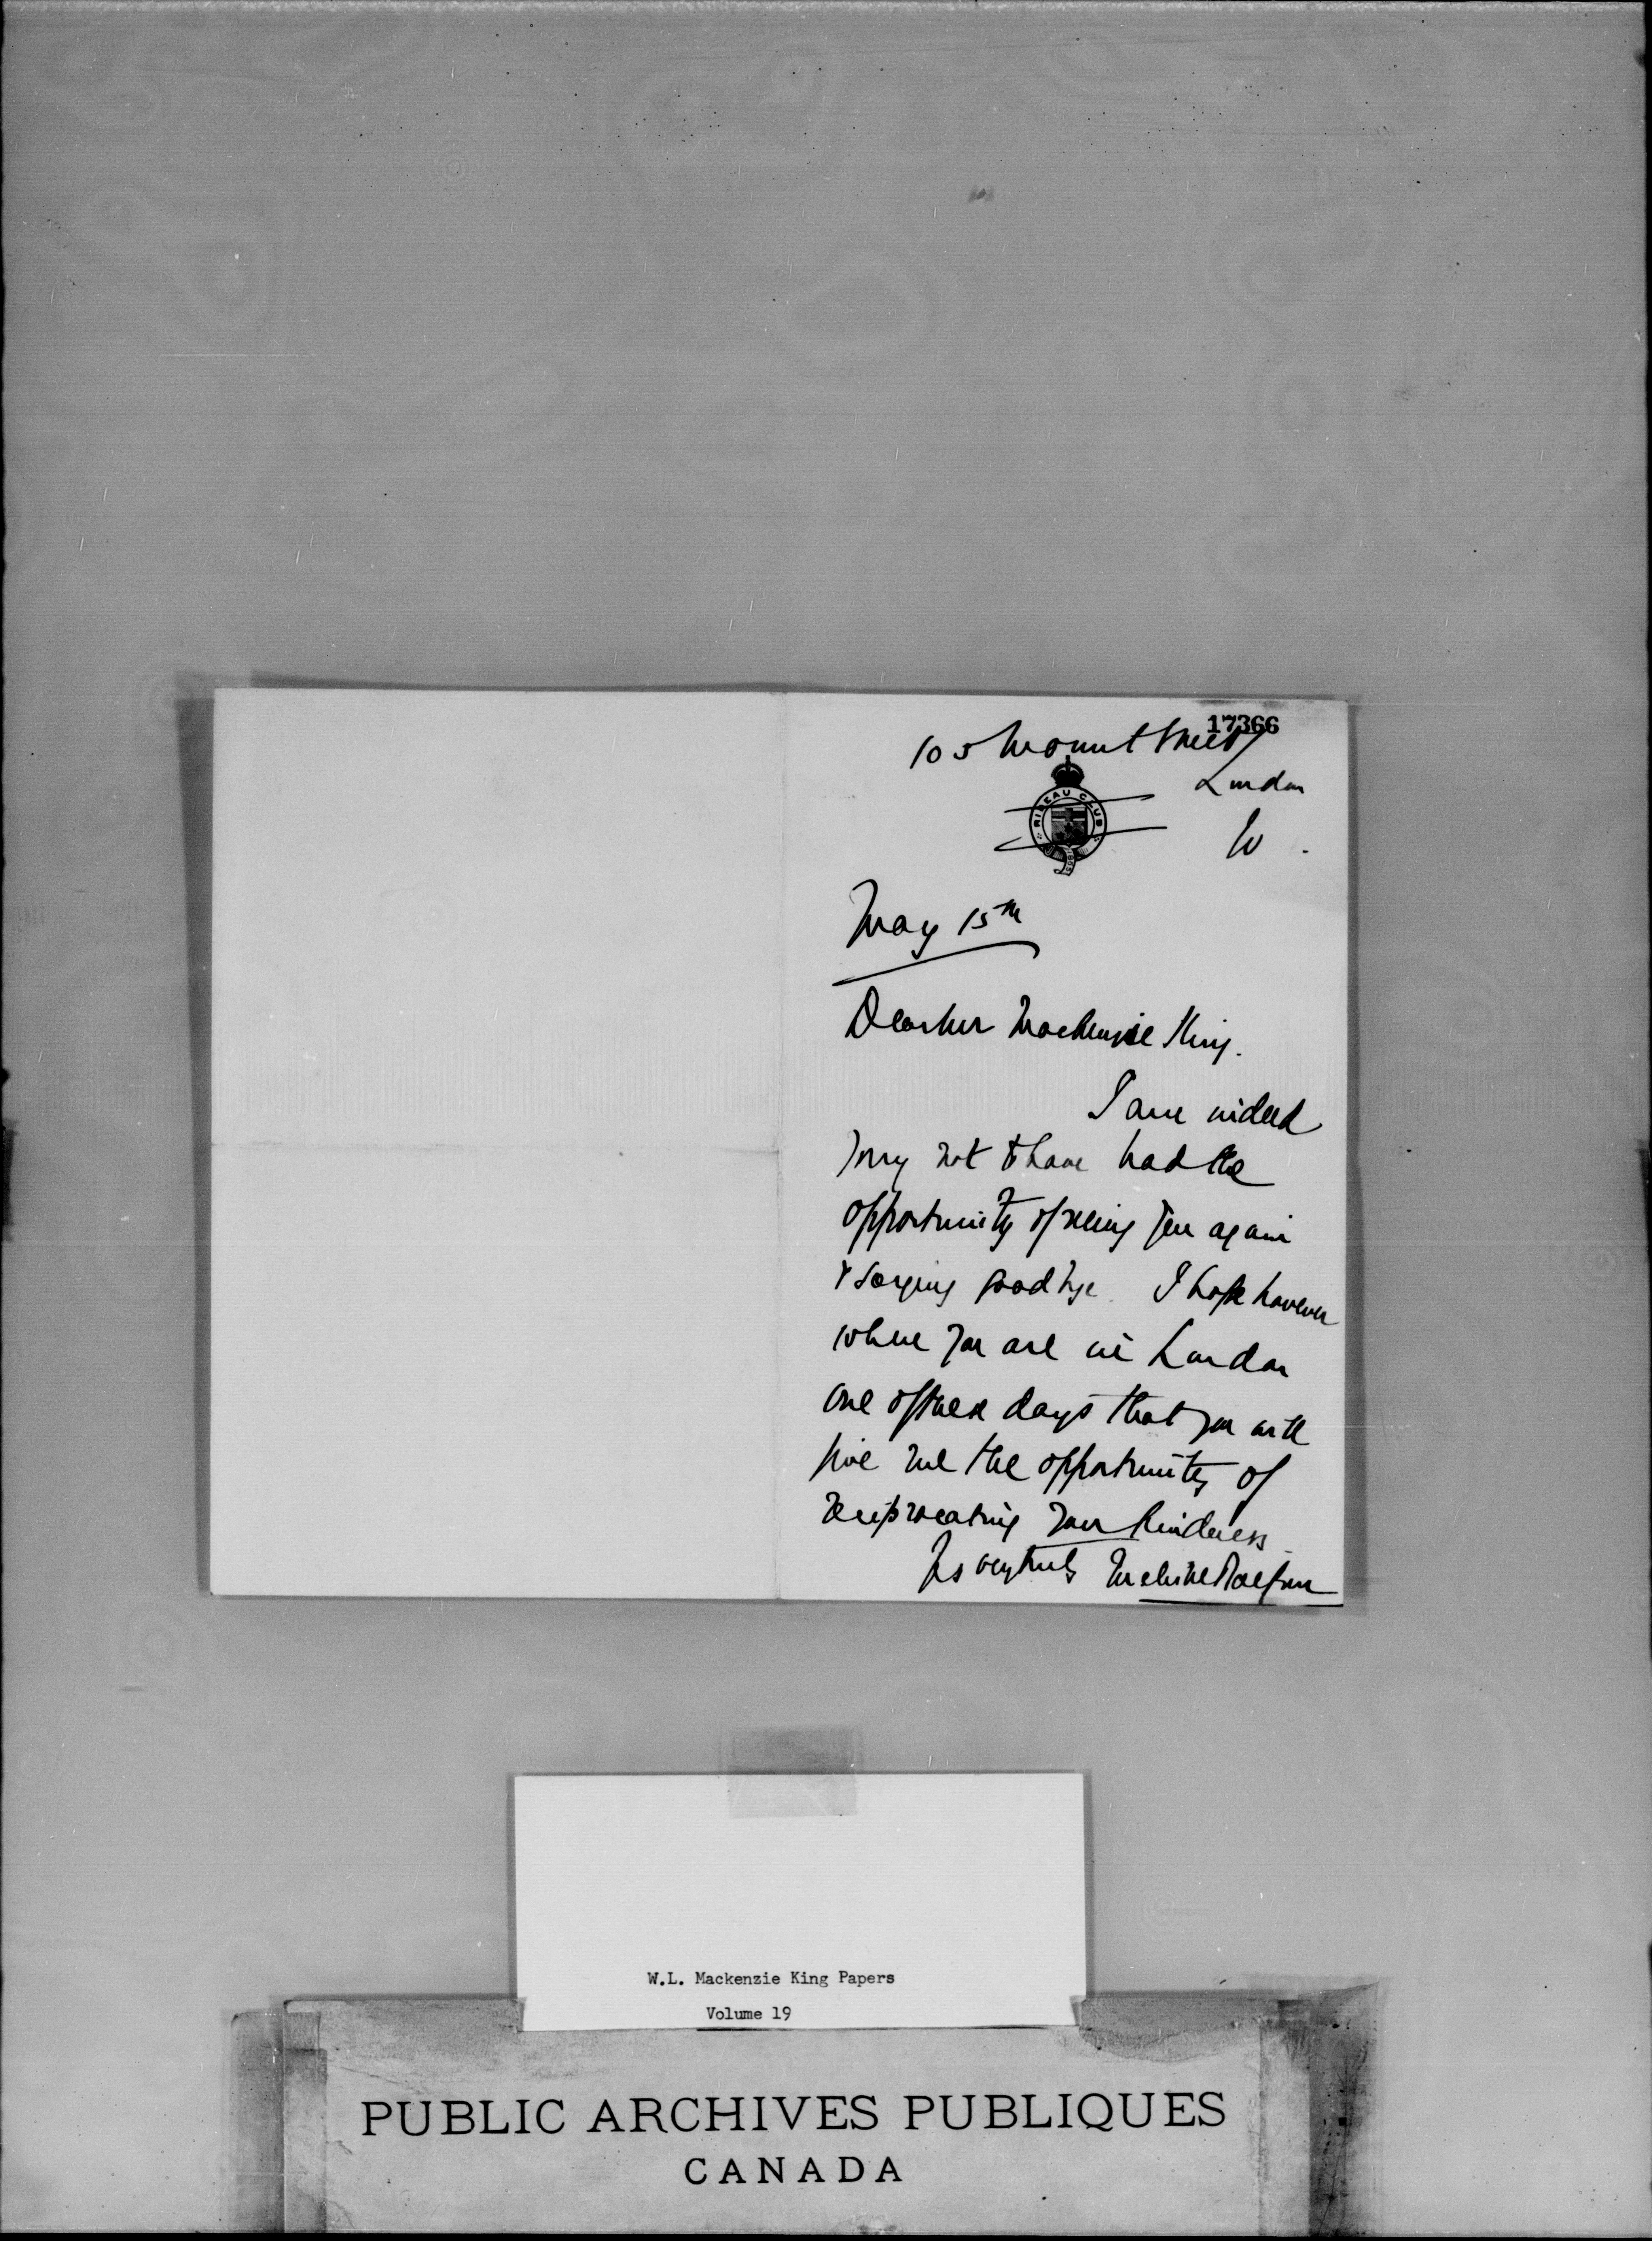 17366
105 Mount Street
London
W.
RIDEAU CLUB
May 15th
Dear Mr Mackenzie King.
I am indeed
sorry not to have had the
opportunity of seeing you again
& saying goodbye. I hope however
when you are in London
one of these days that you will
give me the opportunity of
reciprocating your kindness
Yrs very truly
W.L. Mackenzie King Papers
Volume 19
PUBLIC ARCHIVES PUBLIQUES
CANADA